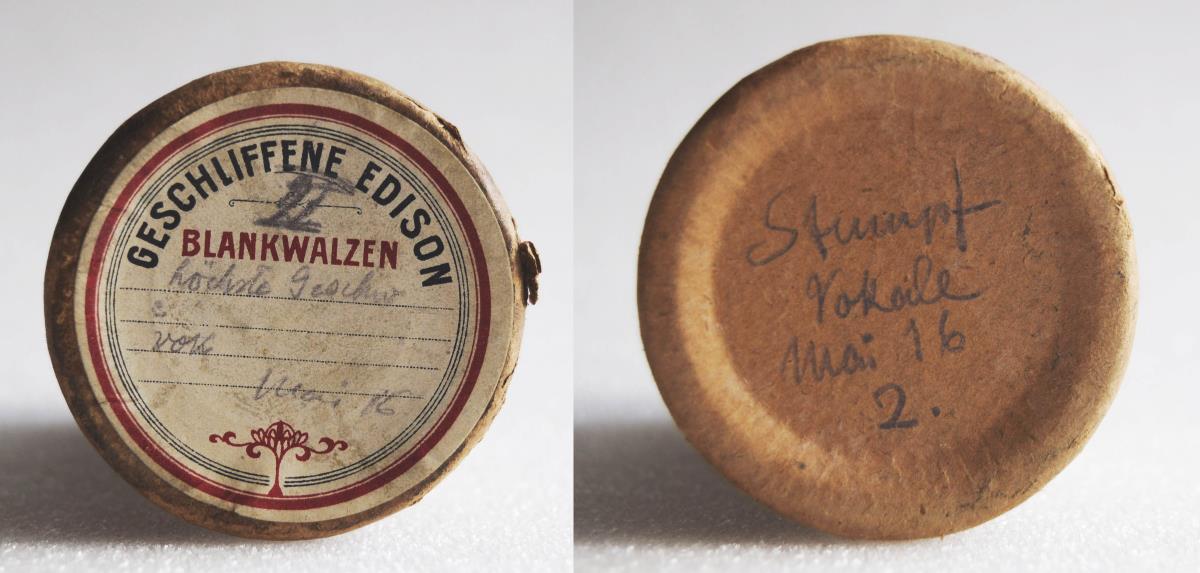 GESCHLIFFENE EDISON
II
BLANKWALZEN
höchste Geschw
Vok
Mai 16
Stumpf
Vokale
Mai 16
2.